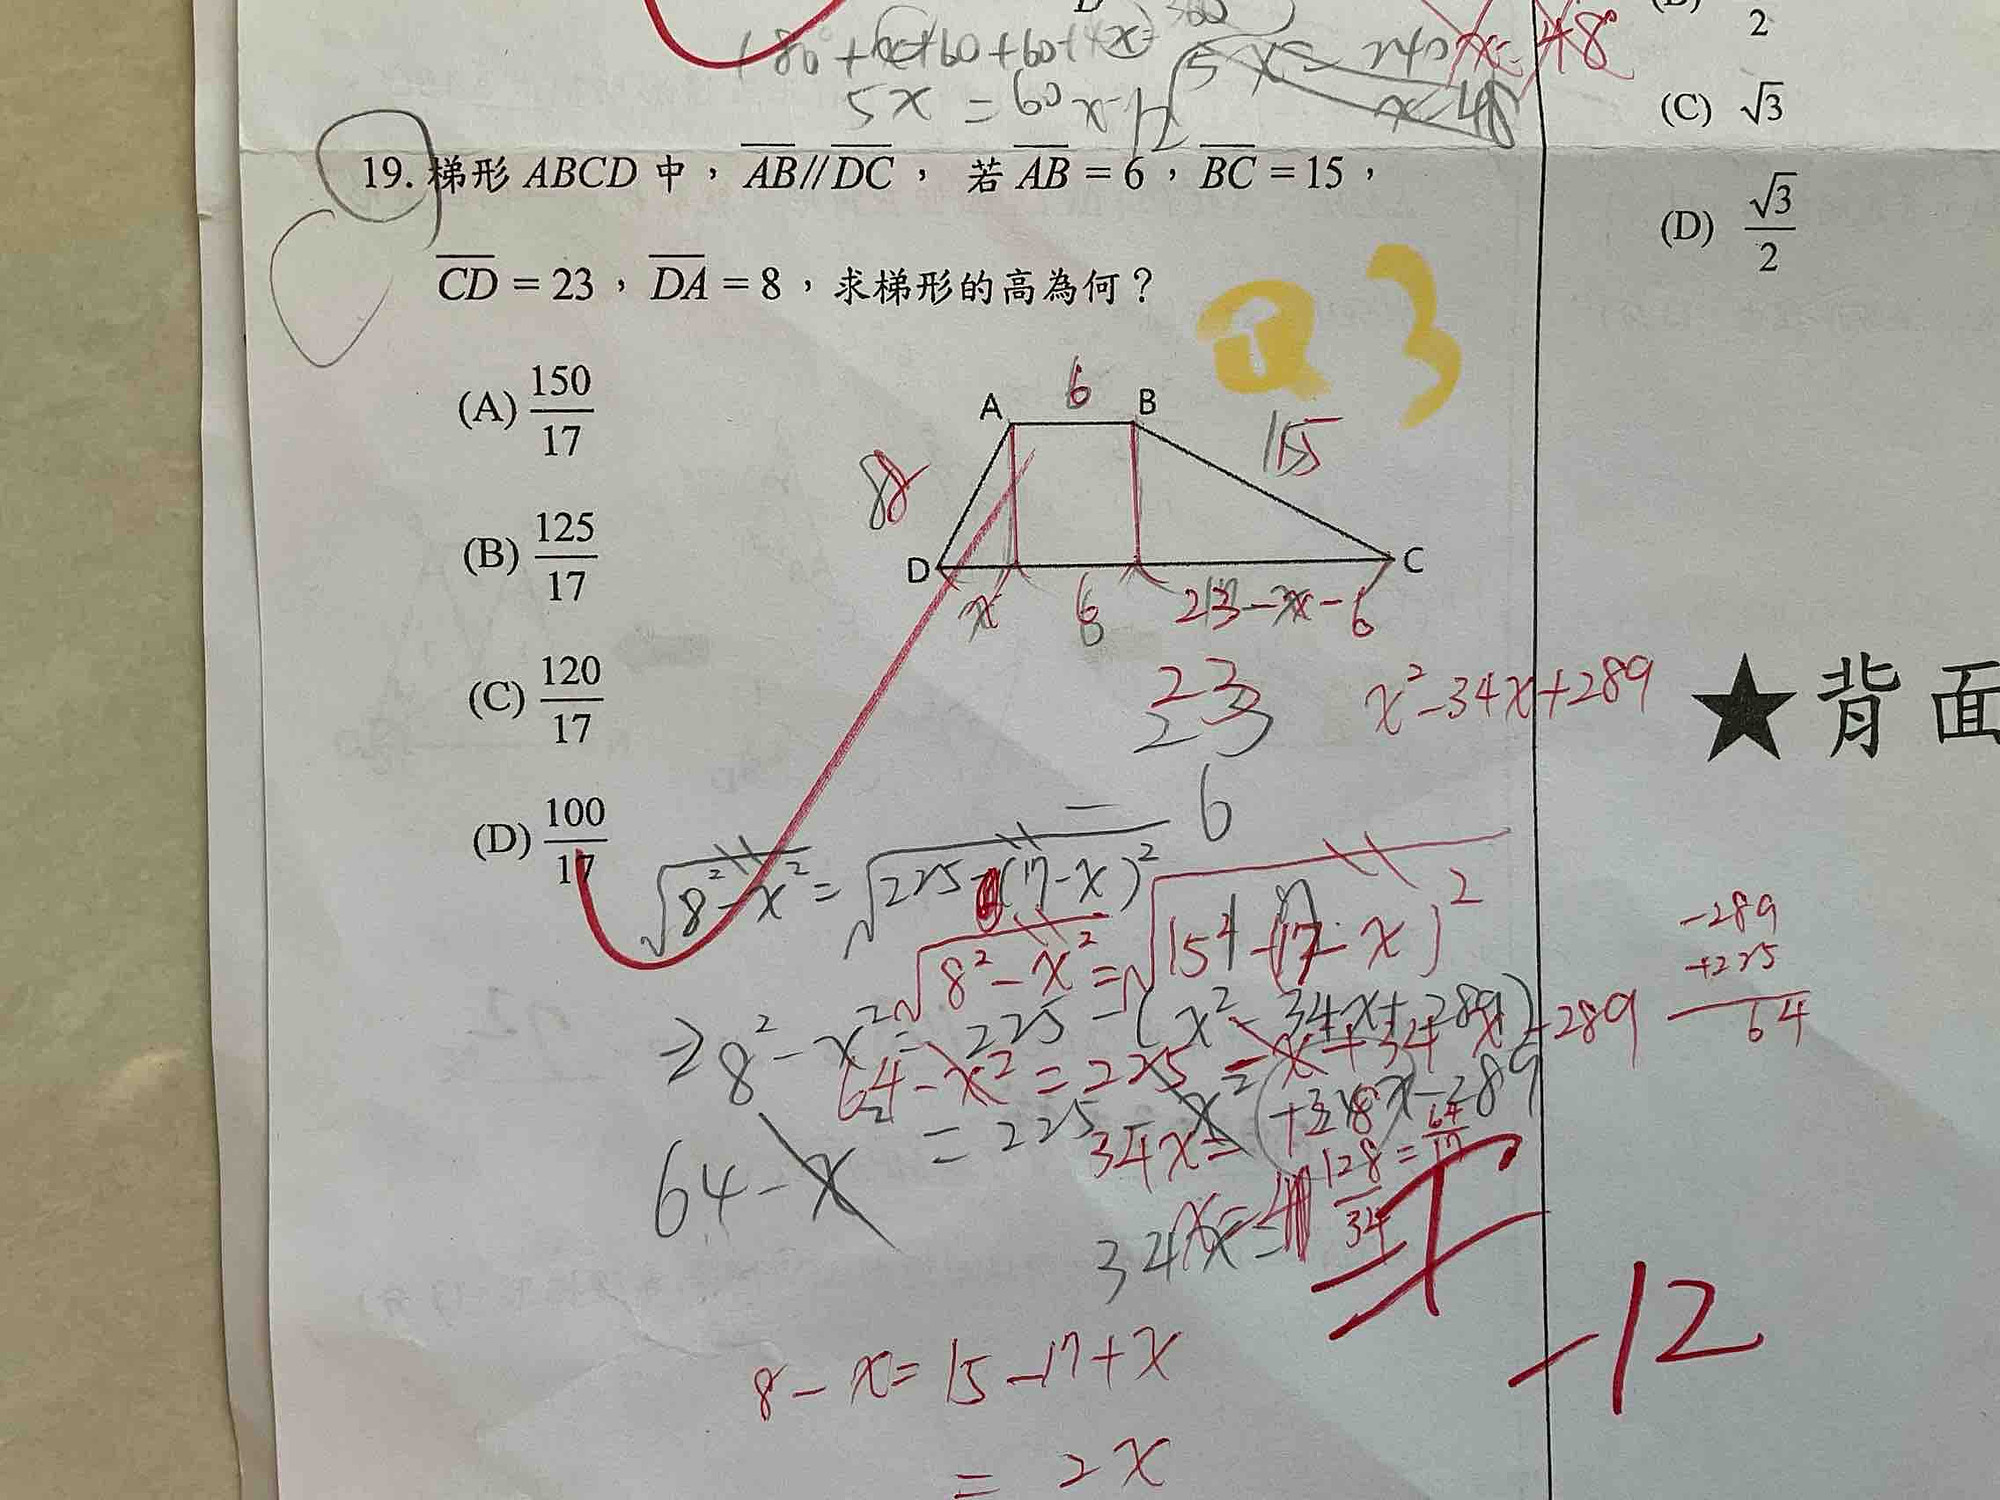 180°+x+60+60+4x=360
5x=240
x=48°
5x = 60
x=48
2
(C) √3
(D) √3/2
19. 梯形 ABCD 中，AB//DC， 若 AB = 6，BC =15，
CD = 23，DA = 8，求梯形的高為何？
3
(A) 150/17
(B) 125/17
(C) 120/17
(D) 100/17
A 6 B
8 15
D C
x 6 23-x-6
23
23
- 6
x²-34x+289
★背面
√8²-x² = √225-(17-x)²
√8²-x² = √15²-(17-x)²
⇒8²-x² = 225-(x²-34x+289)
64-x² = 225-x²+34x-289
-289
+225
64
64-x² = 225-x²+34x-289
34x=128
128/34=64/17
34x=
-12
8-x=15-17+x
= 2x